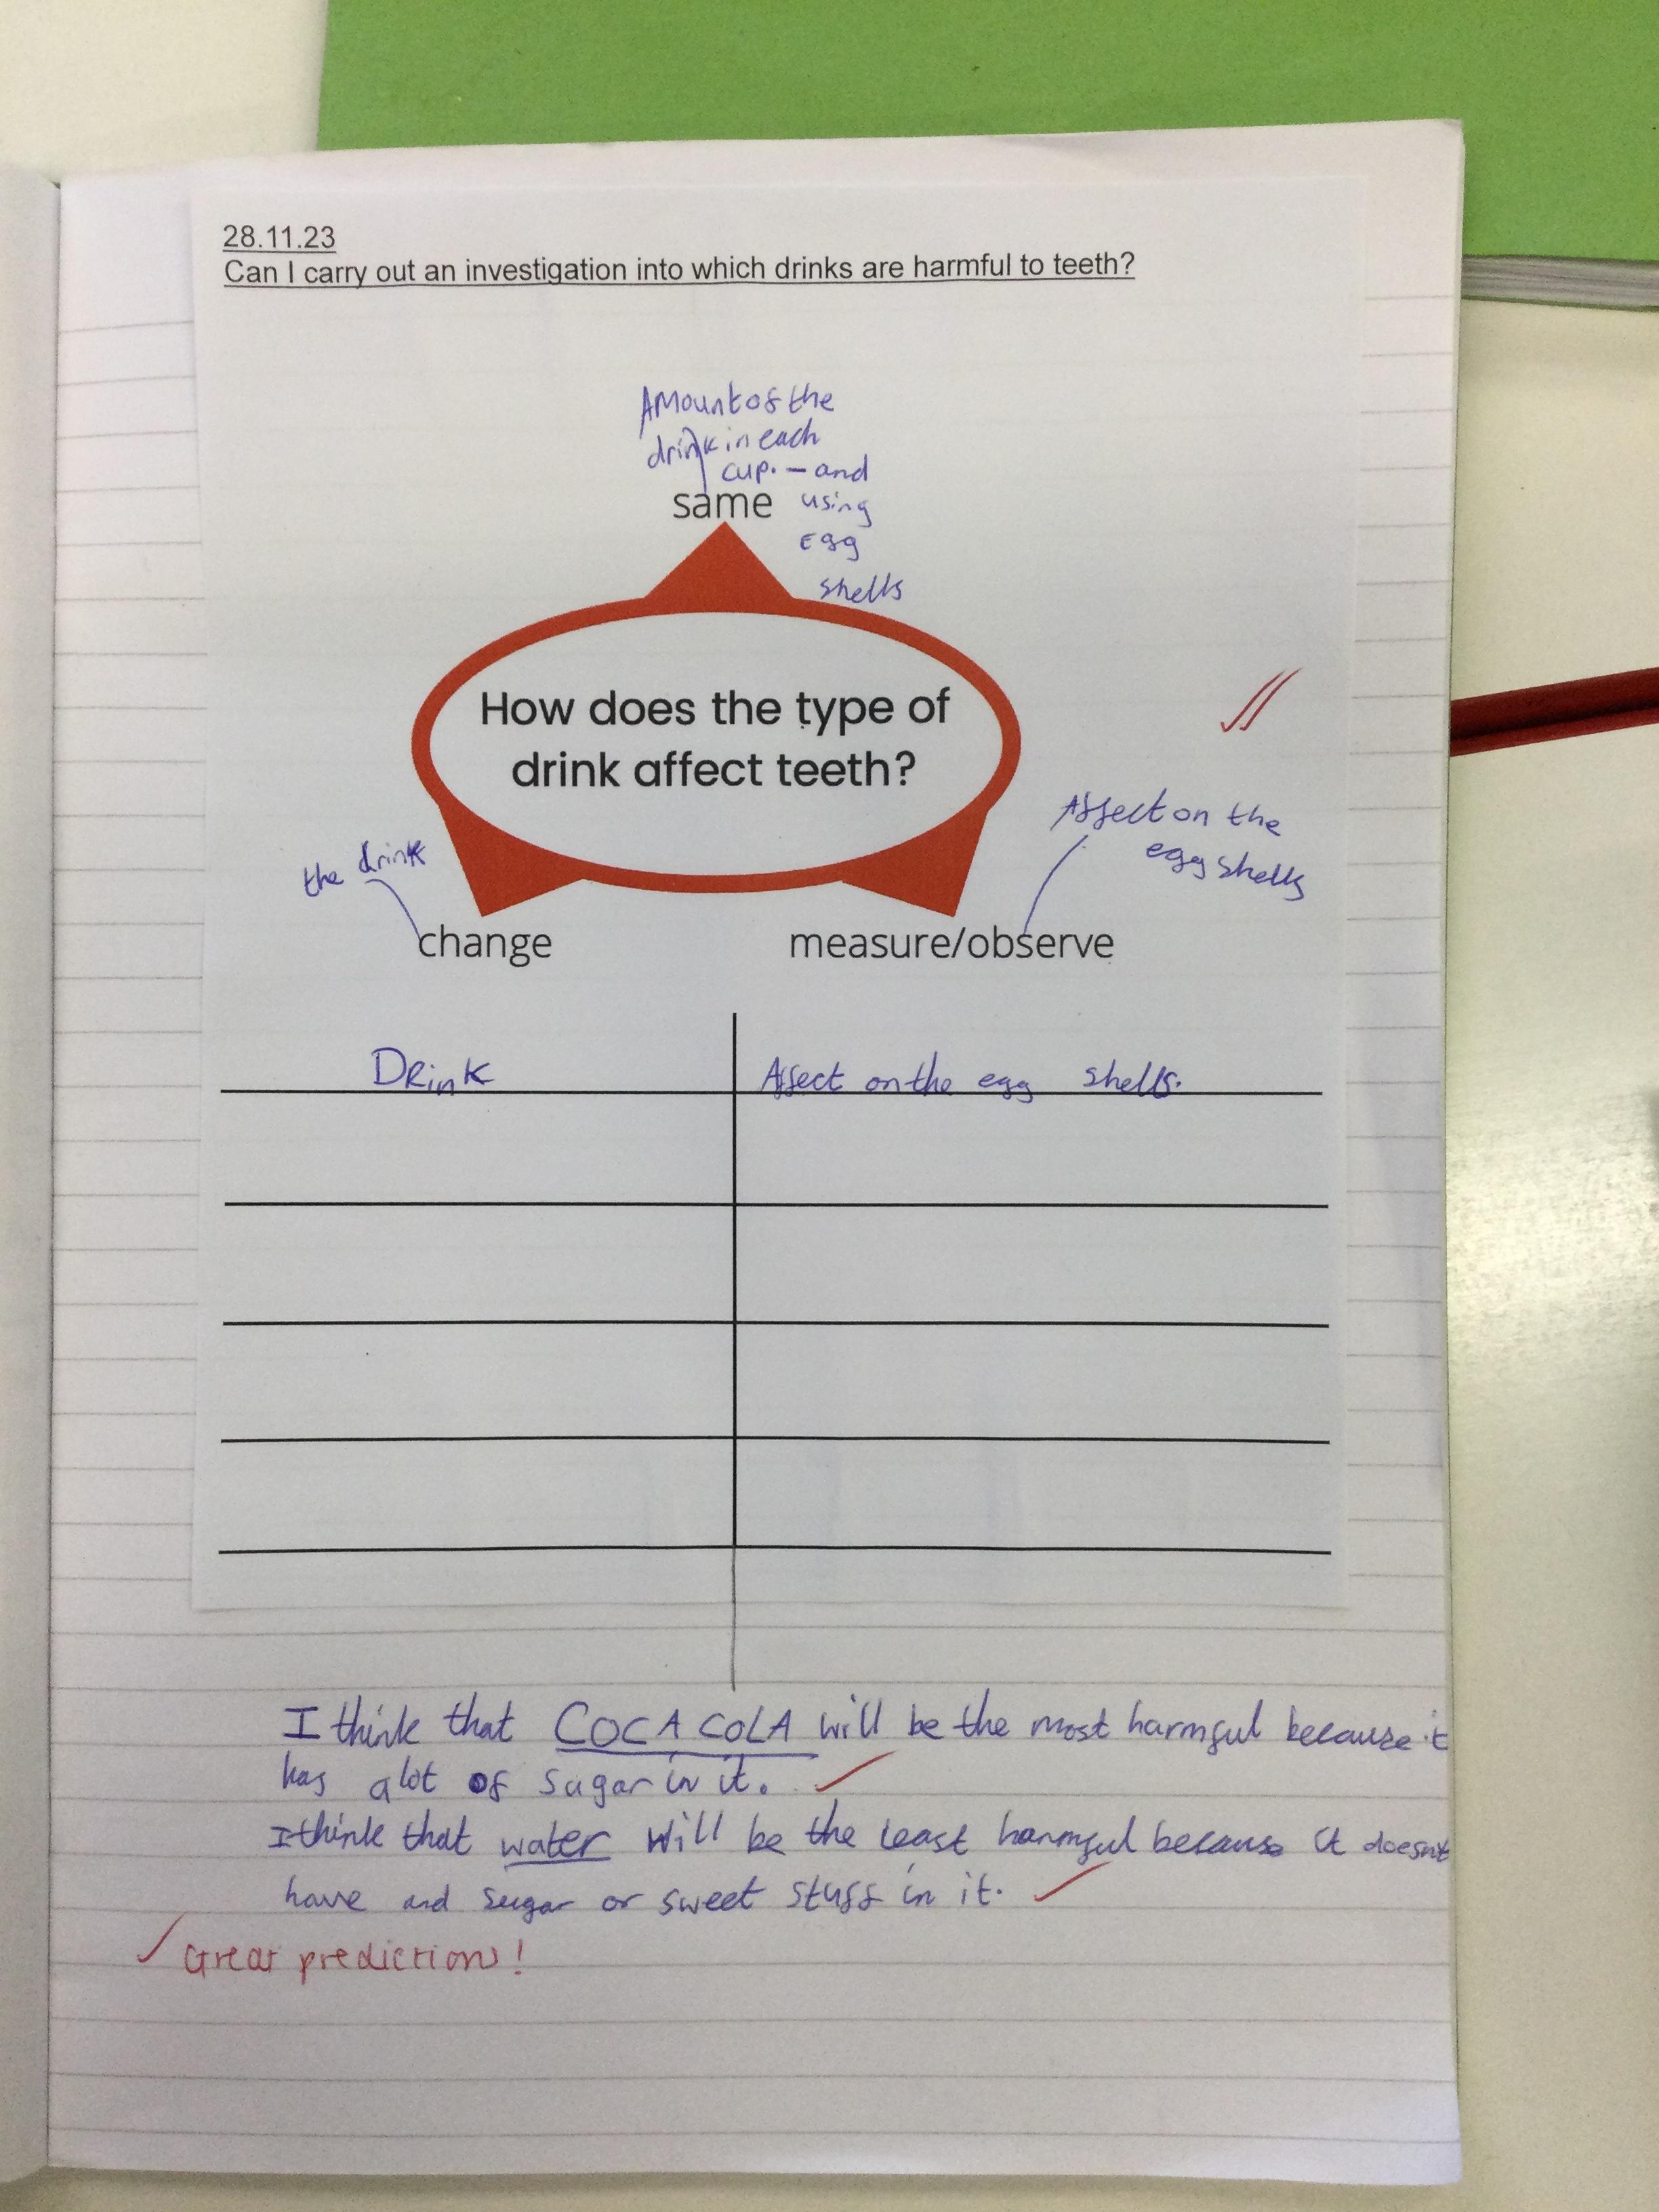 28.11.23
Can I carry out an investigation into which drinks are harmful to teeth?
Amount of the
drink in each
cup. – and
same using
Egg
shells
How does the type of
drink affect teeth?
Affect on the
egg shells
the drink
change
measure/observe
Drink Affect on the egg shells.
I think that COCA COLA will be the most harmful because it
has a lot of sugar in it.
I think that water will be the least harmful because it doesnt
have and sugar or sweet stuff in it.
Great predictions!